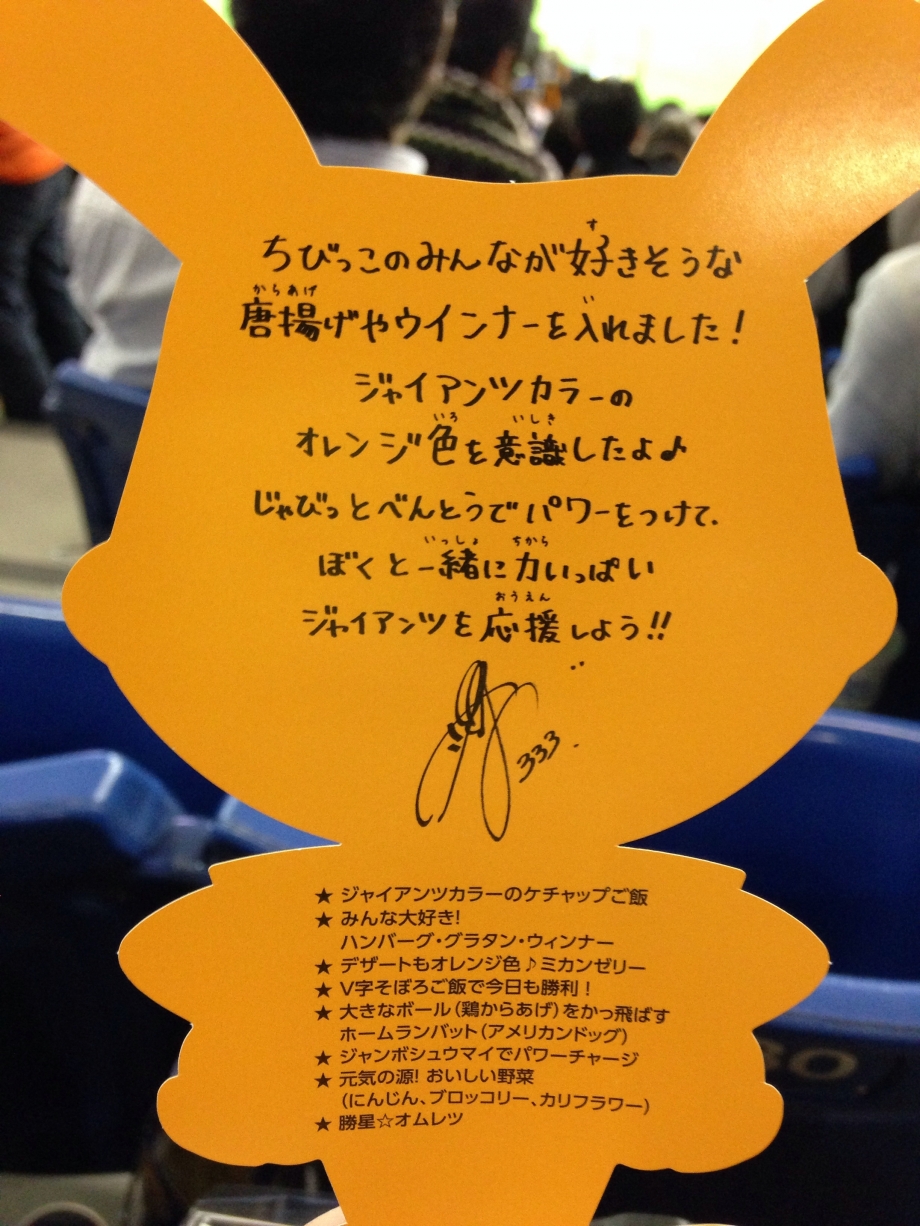 ちびっこのみんなが好きそうな
唐揚げやウインナーを入れました!
ジャイアンツカラーの
オレンジ色を意識したよ♪
じゃびっとべんとうでパワーをつけて、
ぼくと一緒に力いっぱい
ジャイアンツを応援しよう!!
333
★ ジャイアンツカラーのケチャップご飯
★ みんな大好き!
ハンバーグ・グラタン・ウィンナー
★ デザートもオレンジ色♪ミカンゼリー
★ V字そぼろご飯で今日も勝利!
★ 大きなボール(鶏からあげ)をかっ飛ばす
ホームランバット(アメリカンドッグ)
★ ジャンボシュウマイでパワーチャージ
★ 元気の源! おいしい野菜
(にんじん、ブロッコリー、カリフラワー)
★ 勝星☆オムレツ